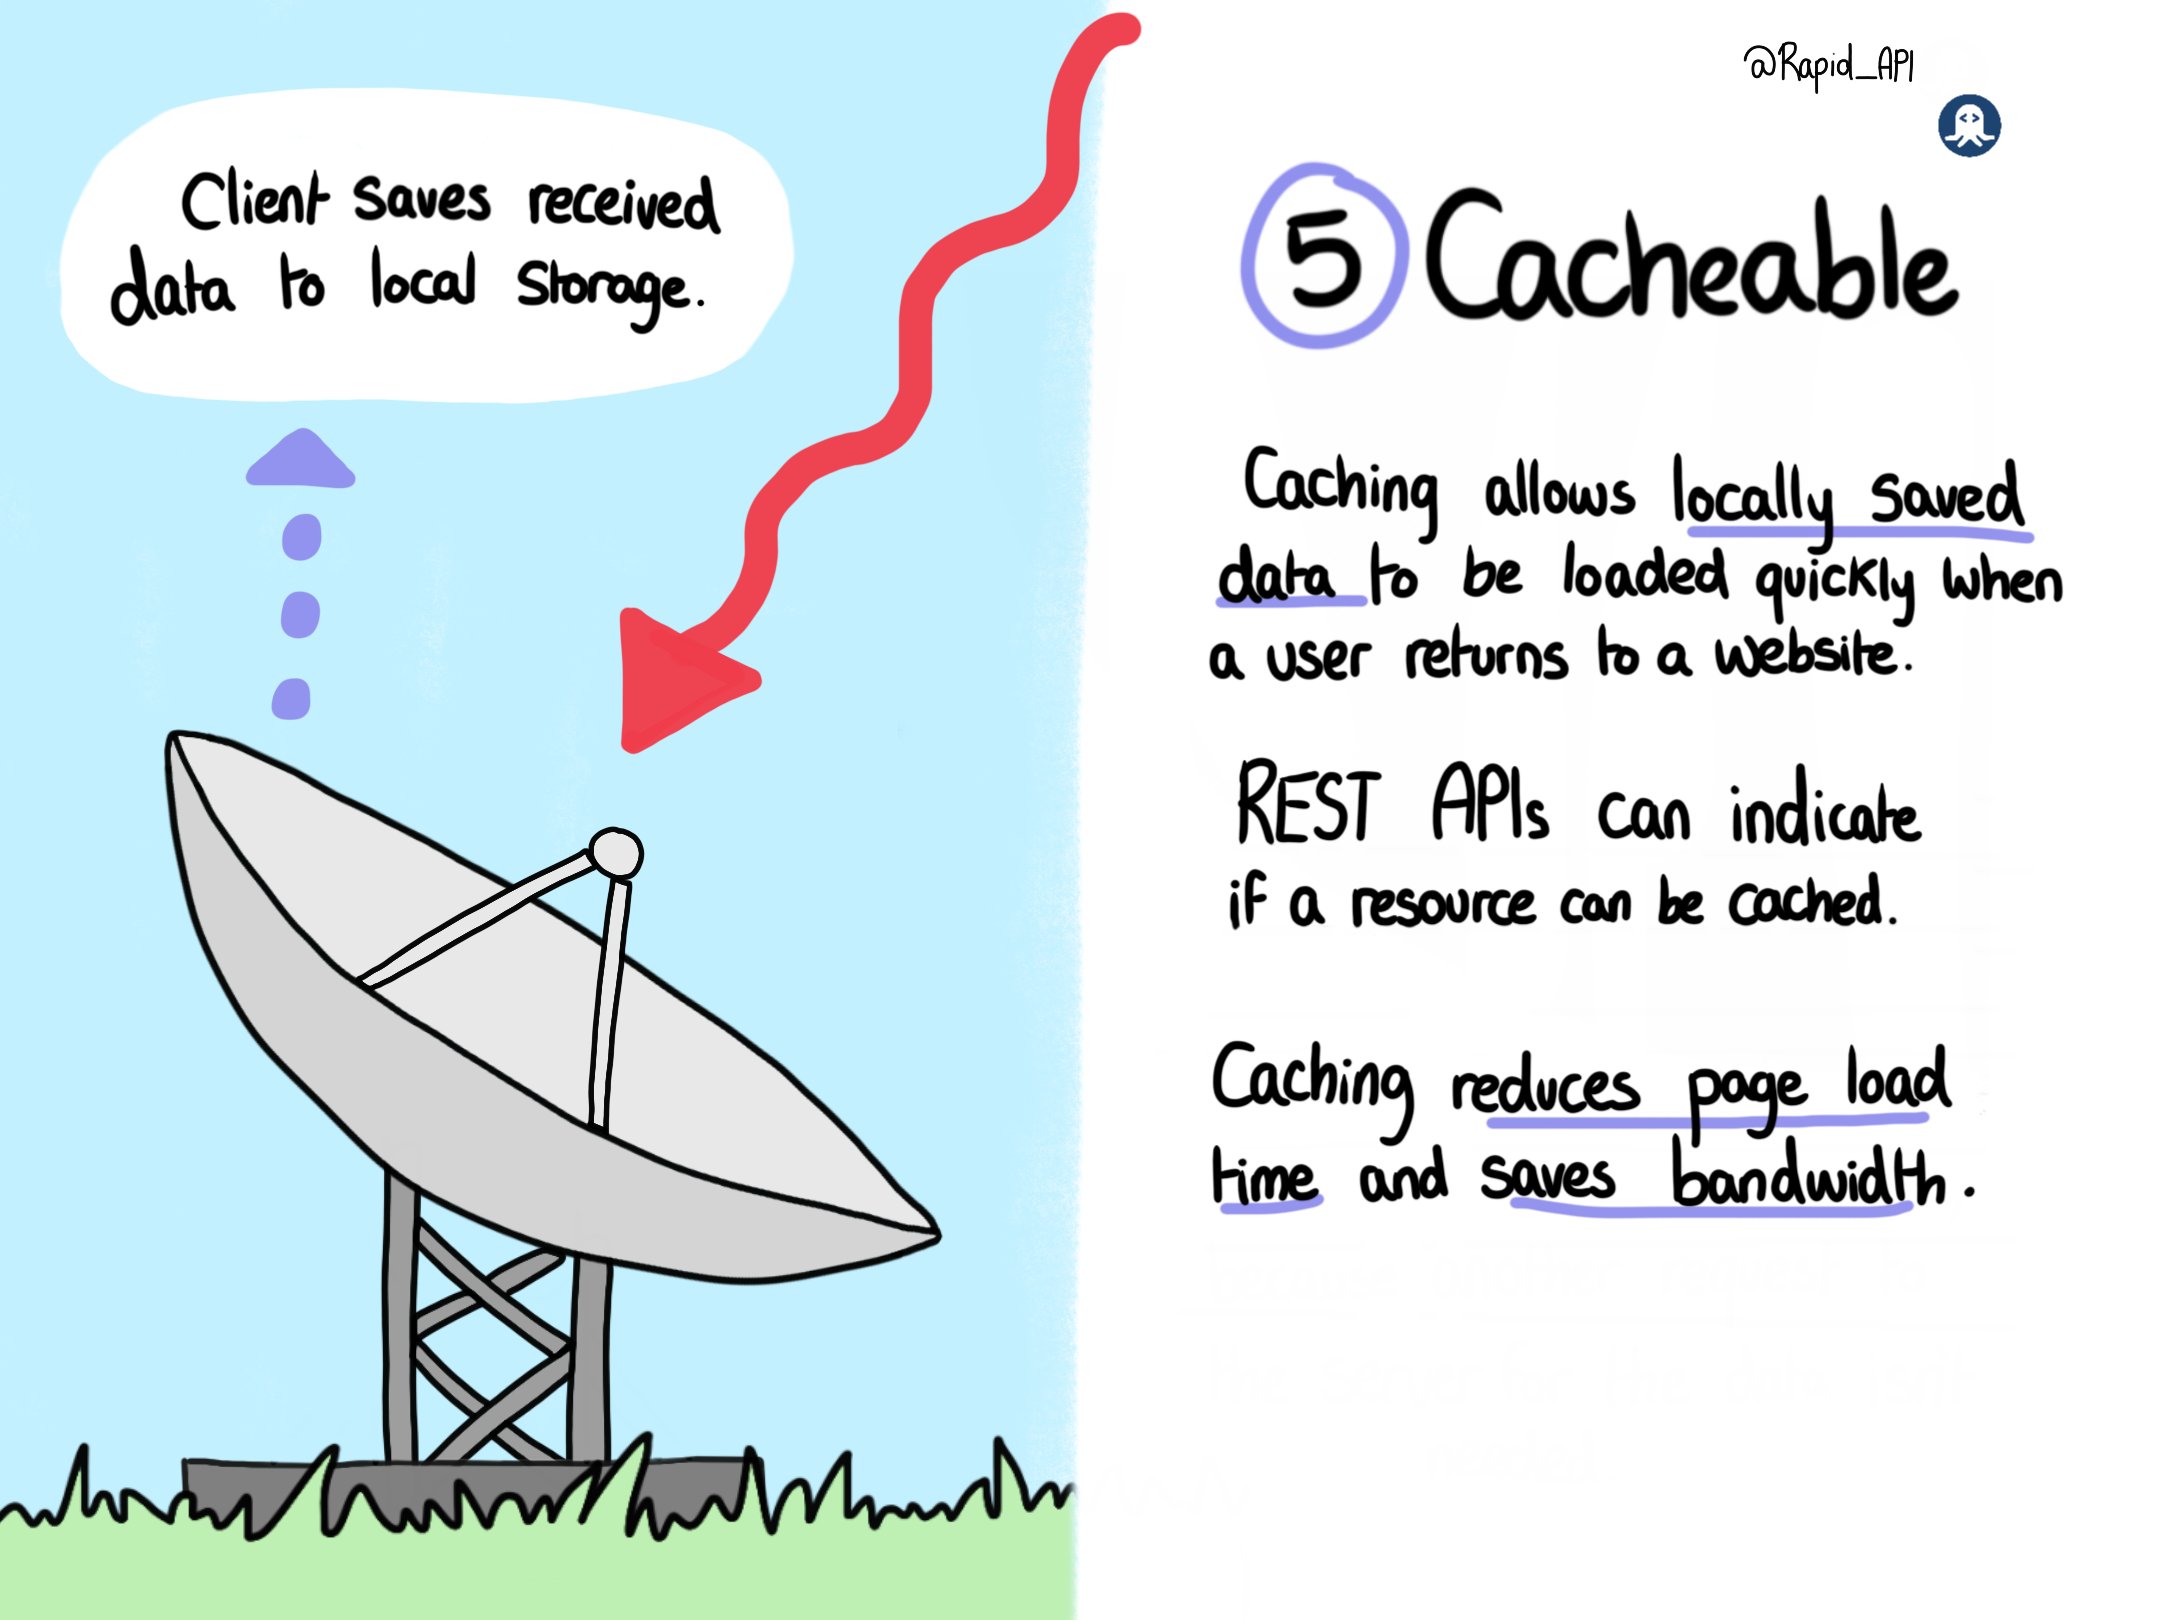 Client saves received
data to local storage.
@Rapid_API
5 Cacheable
Caching allows locally saved
data to be loaded quickly when
a user returns to a website.
REST APIs can indicate
if a resource can be cached.
Caching reduces page load
time and saves bandwidth.